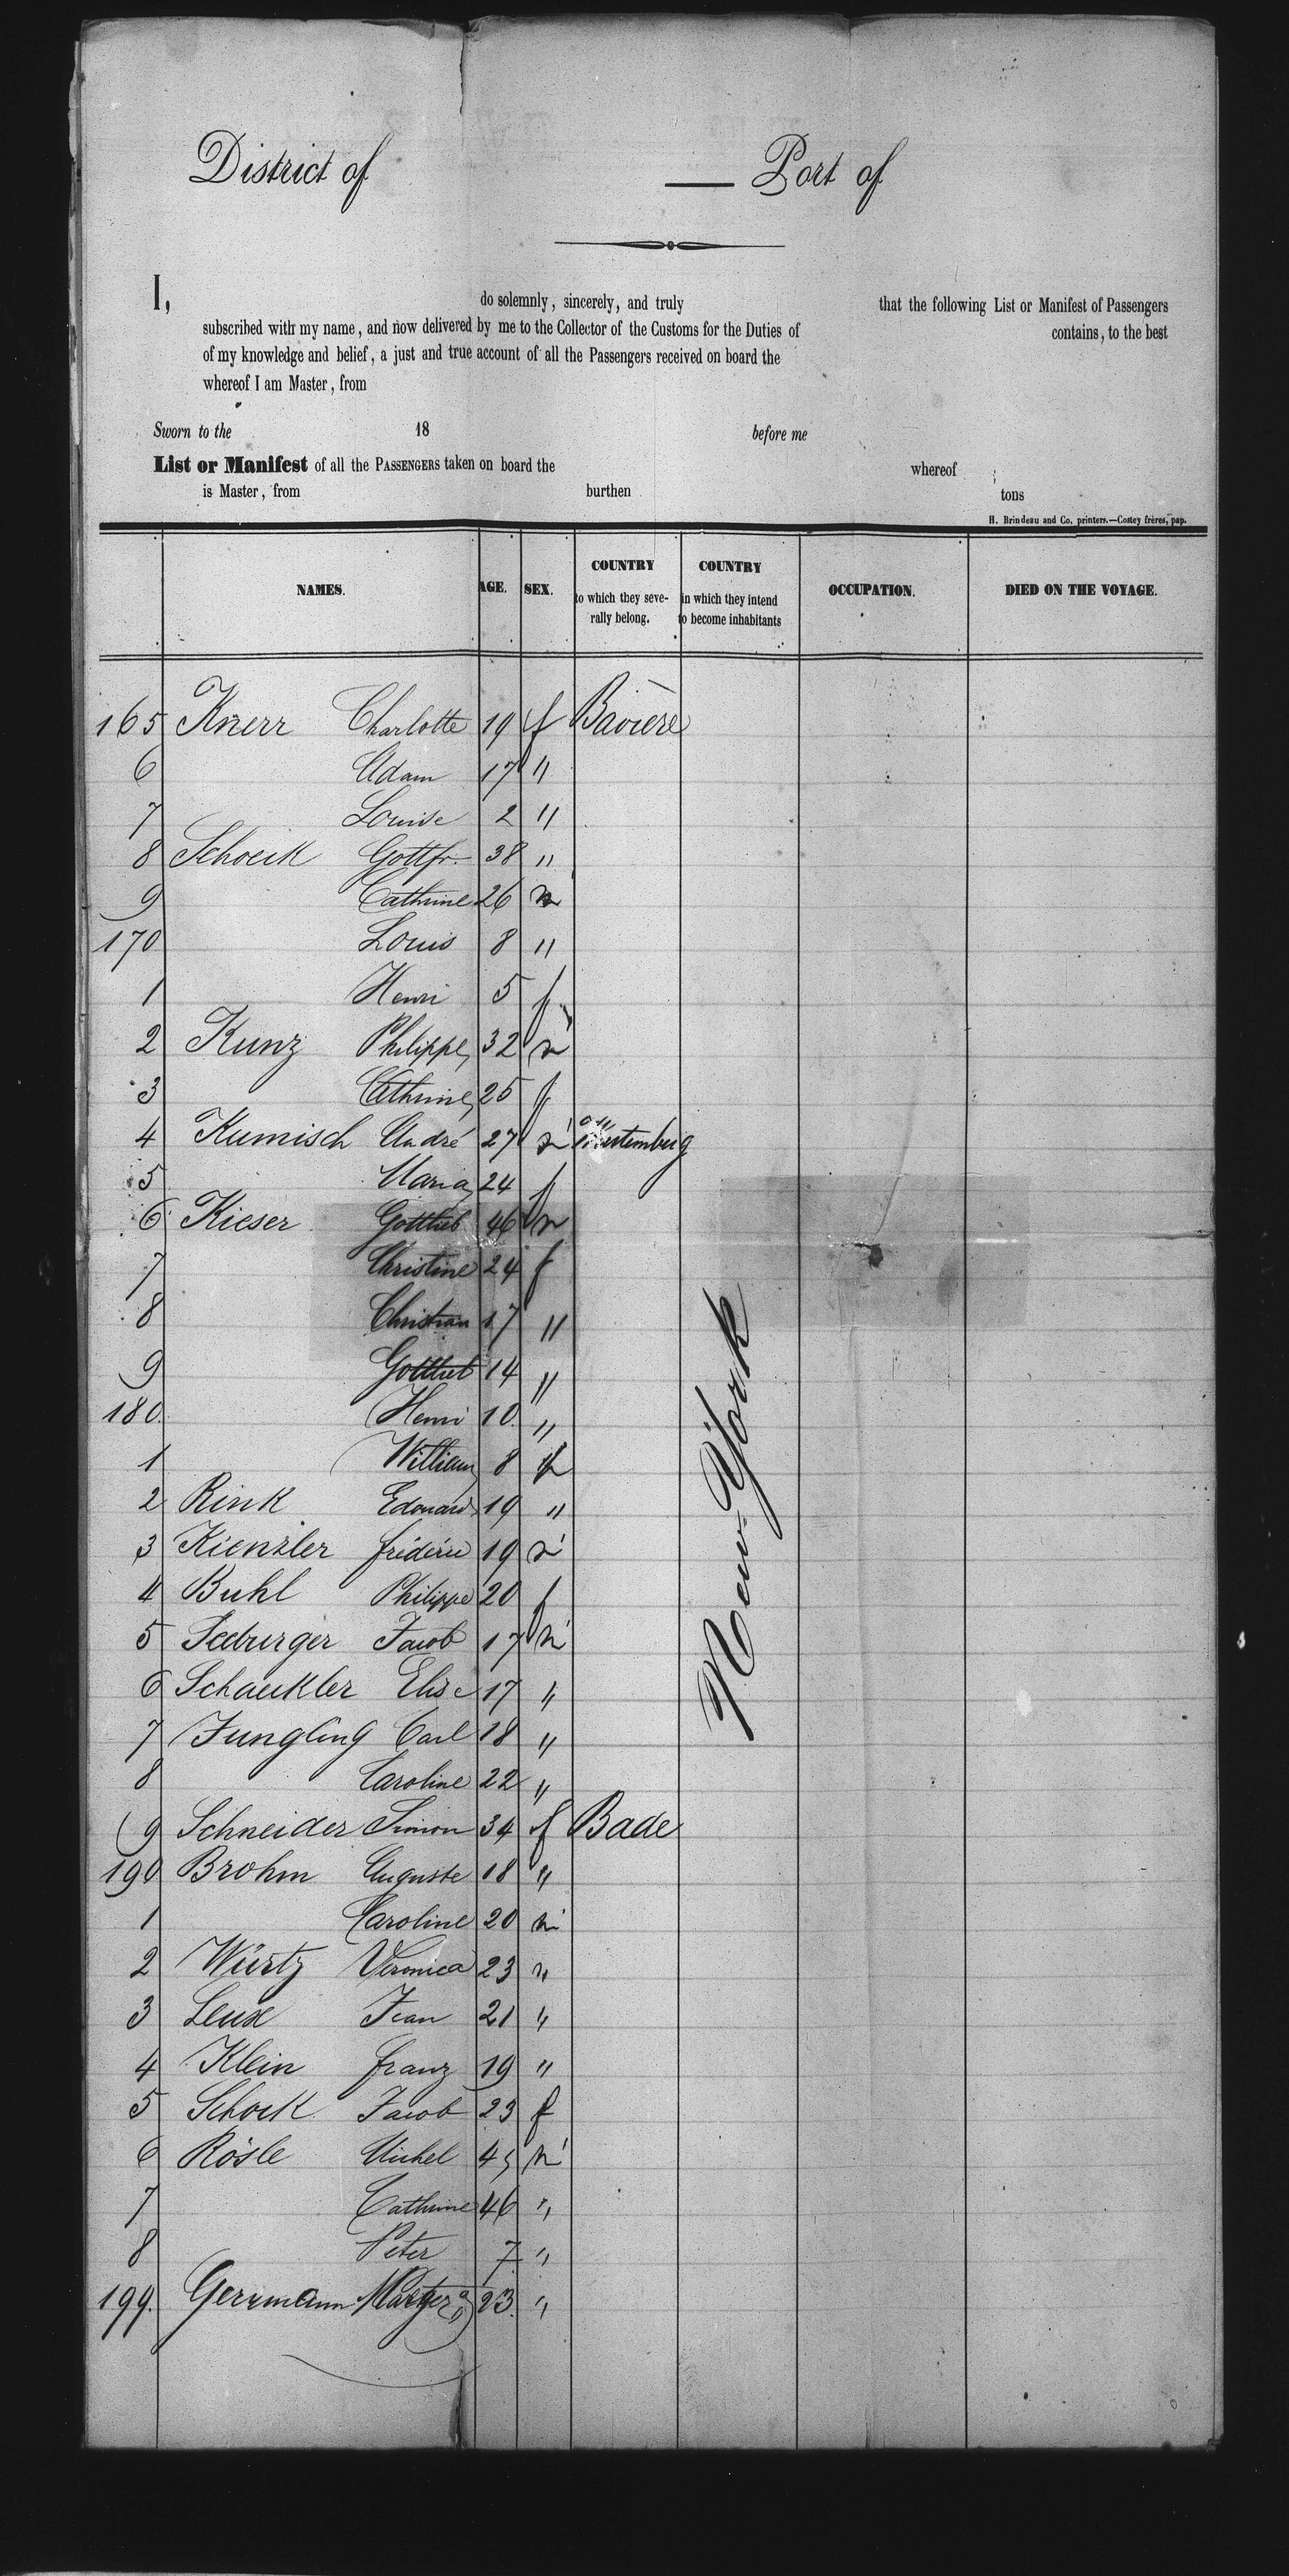 District of — Port of
I, do solemnly, sincerely, and truly that the following List or Manifest of Passengers
subscribed with my name, and now delivered by me to the Collector of the Customs for the Duties of contains, to the best
of my knowledge and belief, a just and true account of all the Passengers received on board the
whereof I am Master, from
Sworn to the 18 before me
List or Manifest of all the PASSENGERS taken on board the whereof
is Master, from burthen tons
H. Brindeau and Co, printers.—Costey frères, pap.
NAMES. AGE. SEX. COUNTRY to which they severally belong. COUNTRY in which they intend to become inhabitants OCCUPATION. DIED ON THE VOYAGE.
165 Knerr Charlotte 19 f Bavière
6 Adam 17 "
7 Louise 2 "
8 Schoeck Gottfr. 38 "
9 Cathrine 26 m
170 Louis 8 "
1 Henri 5 f
2 Kunz Philippe 32 m
3 Cathrine 25 f
4 Kumisch André 27 m Wurtemberg
5 Maria 24 f
6 Kieser Gottlieb 46 m
7 Christine 24 f
8 Christian 17 "
9 Gottlieb 14 "
180 Henri 10 "
1 William 8
2 Rink Edouard 19 "
3 Kienzler fréderic 19 m
4 Buhl Philippe 20 f
5 Seeburger Jacob 17 m
6 Schaeukler Elise 17 "
7 Jungling Carl 18 "
8 Caroline 22 "
9 Schneider Simon 34 f Bade
190 Brohm Auguste 18 "
1 Caroline 20 m
2 Würtz Veronica 23 "
3 Leux Jean 21 "
4 Klein franz 19 "
5 Schock Jacob 23 f
6 Rösle Michel 45 m
7 Cathrine 46 "
8 Peter 7 "
199. Germann 23. "
New-York